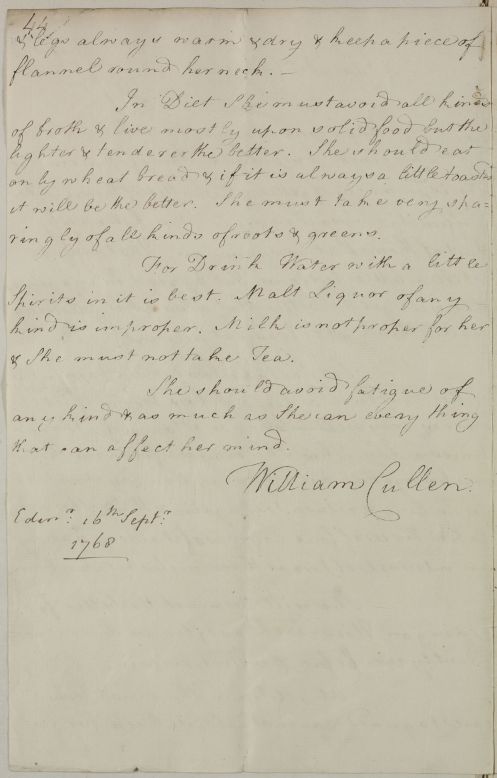 44
& legs always warm & dry & keep a piece of
flannel round her neck. –
In Diet She must avoid all kinds
of broth & live mostly upon solid food but the
lighter & tenderer the better. She should eat
only wheat bread & if it is always a little toasted
it will be the better. She must take very spa=
ringly of all kinds of roots & greens.
For Drink Water with a little
Spirits in it is best. Malt Liquor of any
kind is improper. Milk is not proper for her
& She must not take Tea.
She should avoid fatigue of
any kind & as much as She can every thing
that can affect her mind.
William Cullen.
Edinr. 16th Septr.
1768